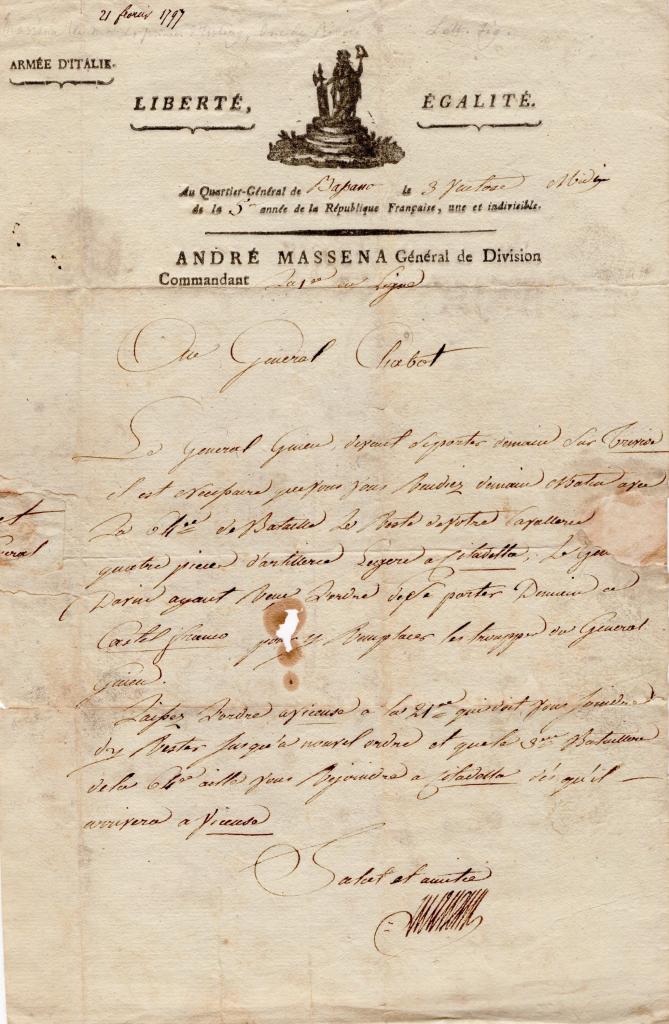 21 fevrier 1797
ARMÉE D'ITALIE.
LIBERTÉ, ÉGALITÉ.
Au Quartier-Général de Bassano le 3 Ventose Midi
de la 5me année de la République Française, une et indivisible.
ANDRÉ MASSENA Général de Division
Commandant La 1ere en Ligne
Au General Chabot
Le General Guieu devant se porter demain sur Trevise
il est necessaire que vous vous Rendiez demain Matin avec
La de Bataille Le Reste de votre Cavallerie
quatre pieces d'artillerie Legere a Citadella, Le Gen
ayant Recu L'ordre de se porter Demain a
Castel franco pour y Remplacer les trouppes du General
Guieu.
Laissez L'ordre a Vicense a la 21me qui doit vous Joindre
d'y Rester Jusqu'a nouvel ordre et que le 3me Bataillon
de la 64me aille vous Rejoindre a Citadella des qu'il
arrivera a Vicense
Salut et amitie
Massena